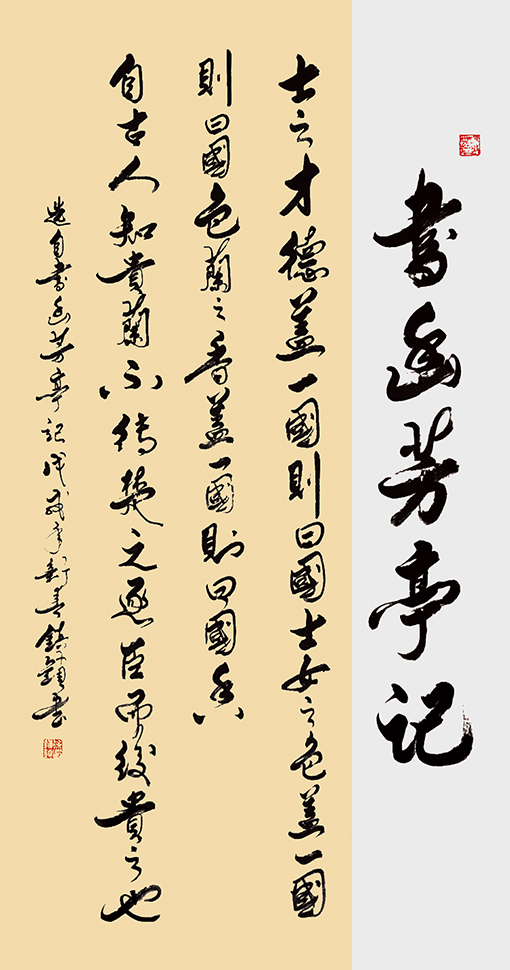 書幽芳亭記
士之才德盖一國則曰國士女之色盖一國
則曰國色蘭之香盖一國則曰國香
自古人知貴蘭不待楚之逐臣而後貴之也
选自書幽芳亭記戊戌年新春書